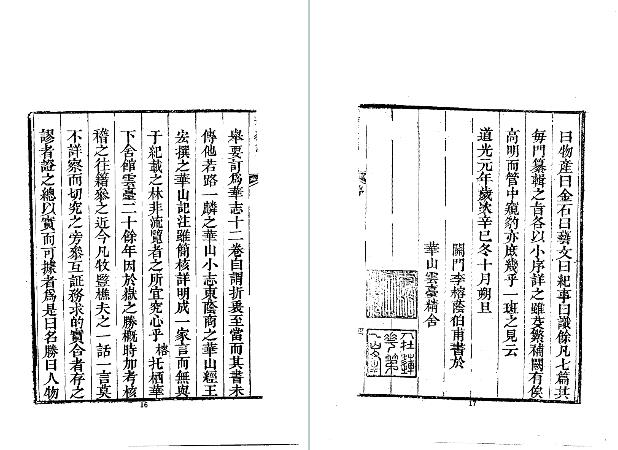 舉要訂為華志十二卷自謂折衷至當而其書未
傳他若路一麟之華山小志東蔭商之華山經王
安撰之華山記注雖簡核詳明成一家言而無與
于紀載之林非流覽者之所宜究心乎榕托棲華
下舍館雲臺二十餘年因於嶽之勝概時加考核
稽之往籍參之近今凡牧豎樵夫之一話一言莫
不詳察而切究之旁參互証務求的實合者存之
謬者證之總以實而可據者為是曰名勝曰人物
16
曰物產曰金石曰藝文曰紀事曰識餘凡七篇其
每門纂輯之旨各以小序詳之雖芟繁補闕有俟
高明而管中窺豹亦庶幾乎一斑之見云
道光元年歲次辛巳冬十月朔旦
關門李榕蔭伯甫書於
華山雲臺精舍
17